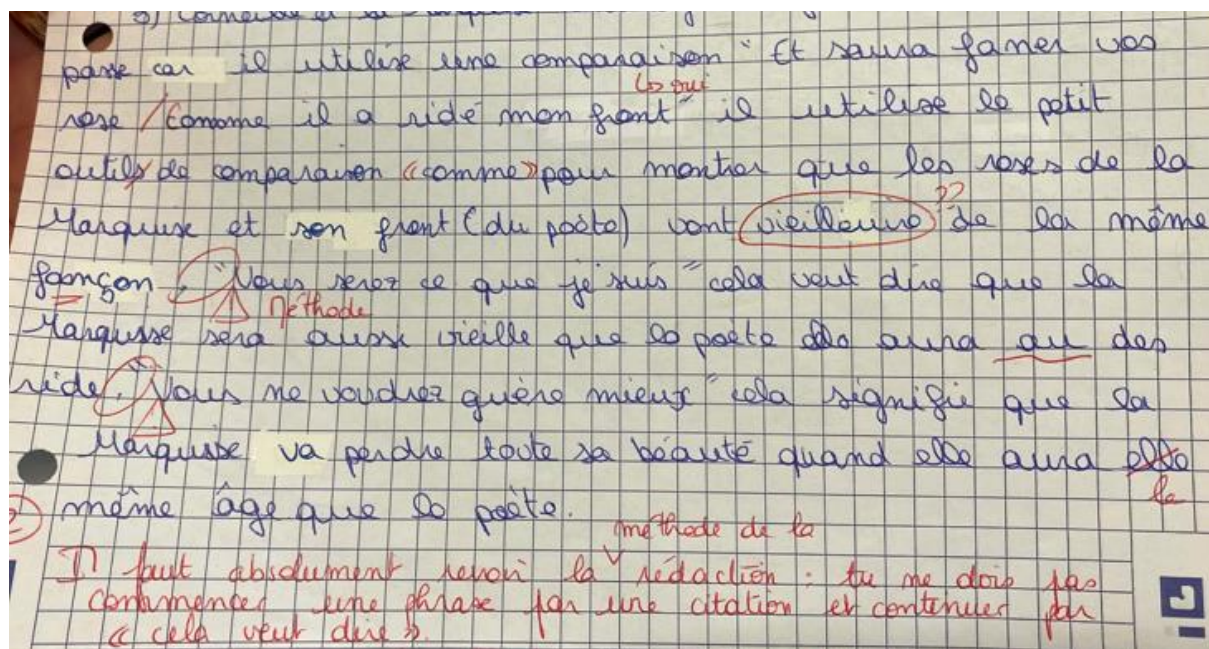 passe car il utilise une comparaison " Et saura faner vos
↳ oui
rose / Comome il a ridé mon front " il utilise le petit
outils de comparaison «comme» pour montrer que les roses de la
??
Marquise et son front (du poète) vont vieilleure de la même
famçon, "Vous serez ce que je suis" cela veut dire que la
⚠ Méthode
Marquisse sera aussi vieille que le poète elle aura au des
ride, "Vous ne voudrez guère mieux" cela signifie que la
Marquise va perdre toute sa beauté quand elle aura elle
le
même âge que le poète.
méthode de la
Il faut absolument revoir la rédaction : tu ne dois pas
commencer une phrase par une citation et continuer par
« cela veut dire ».